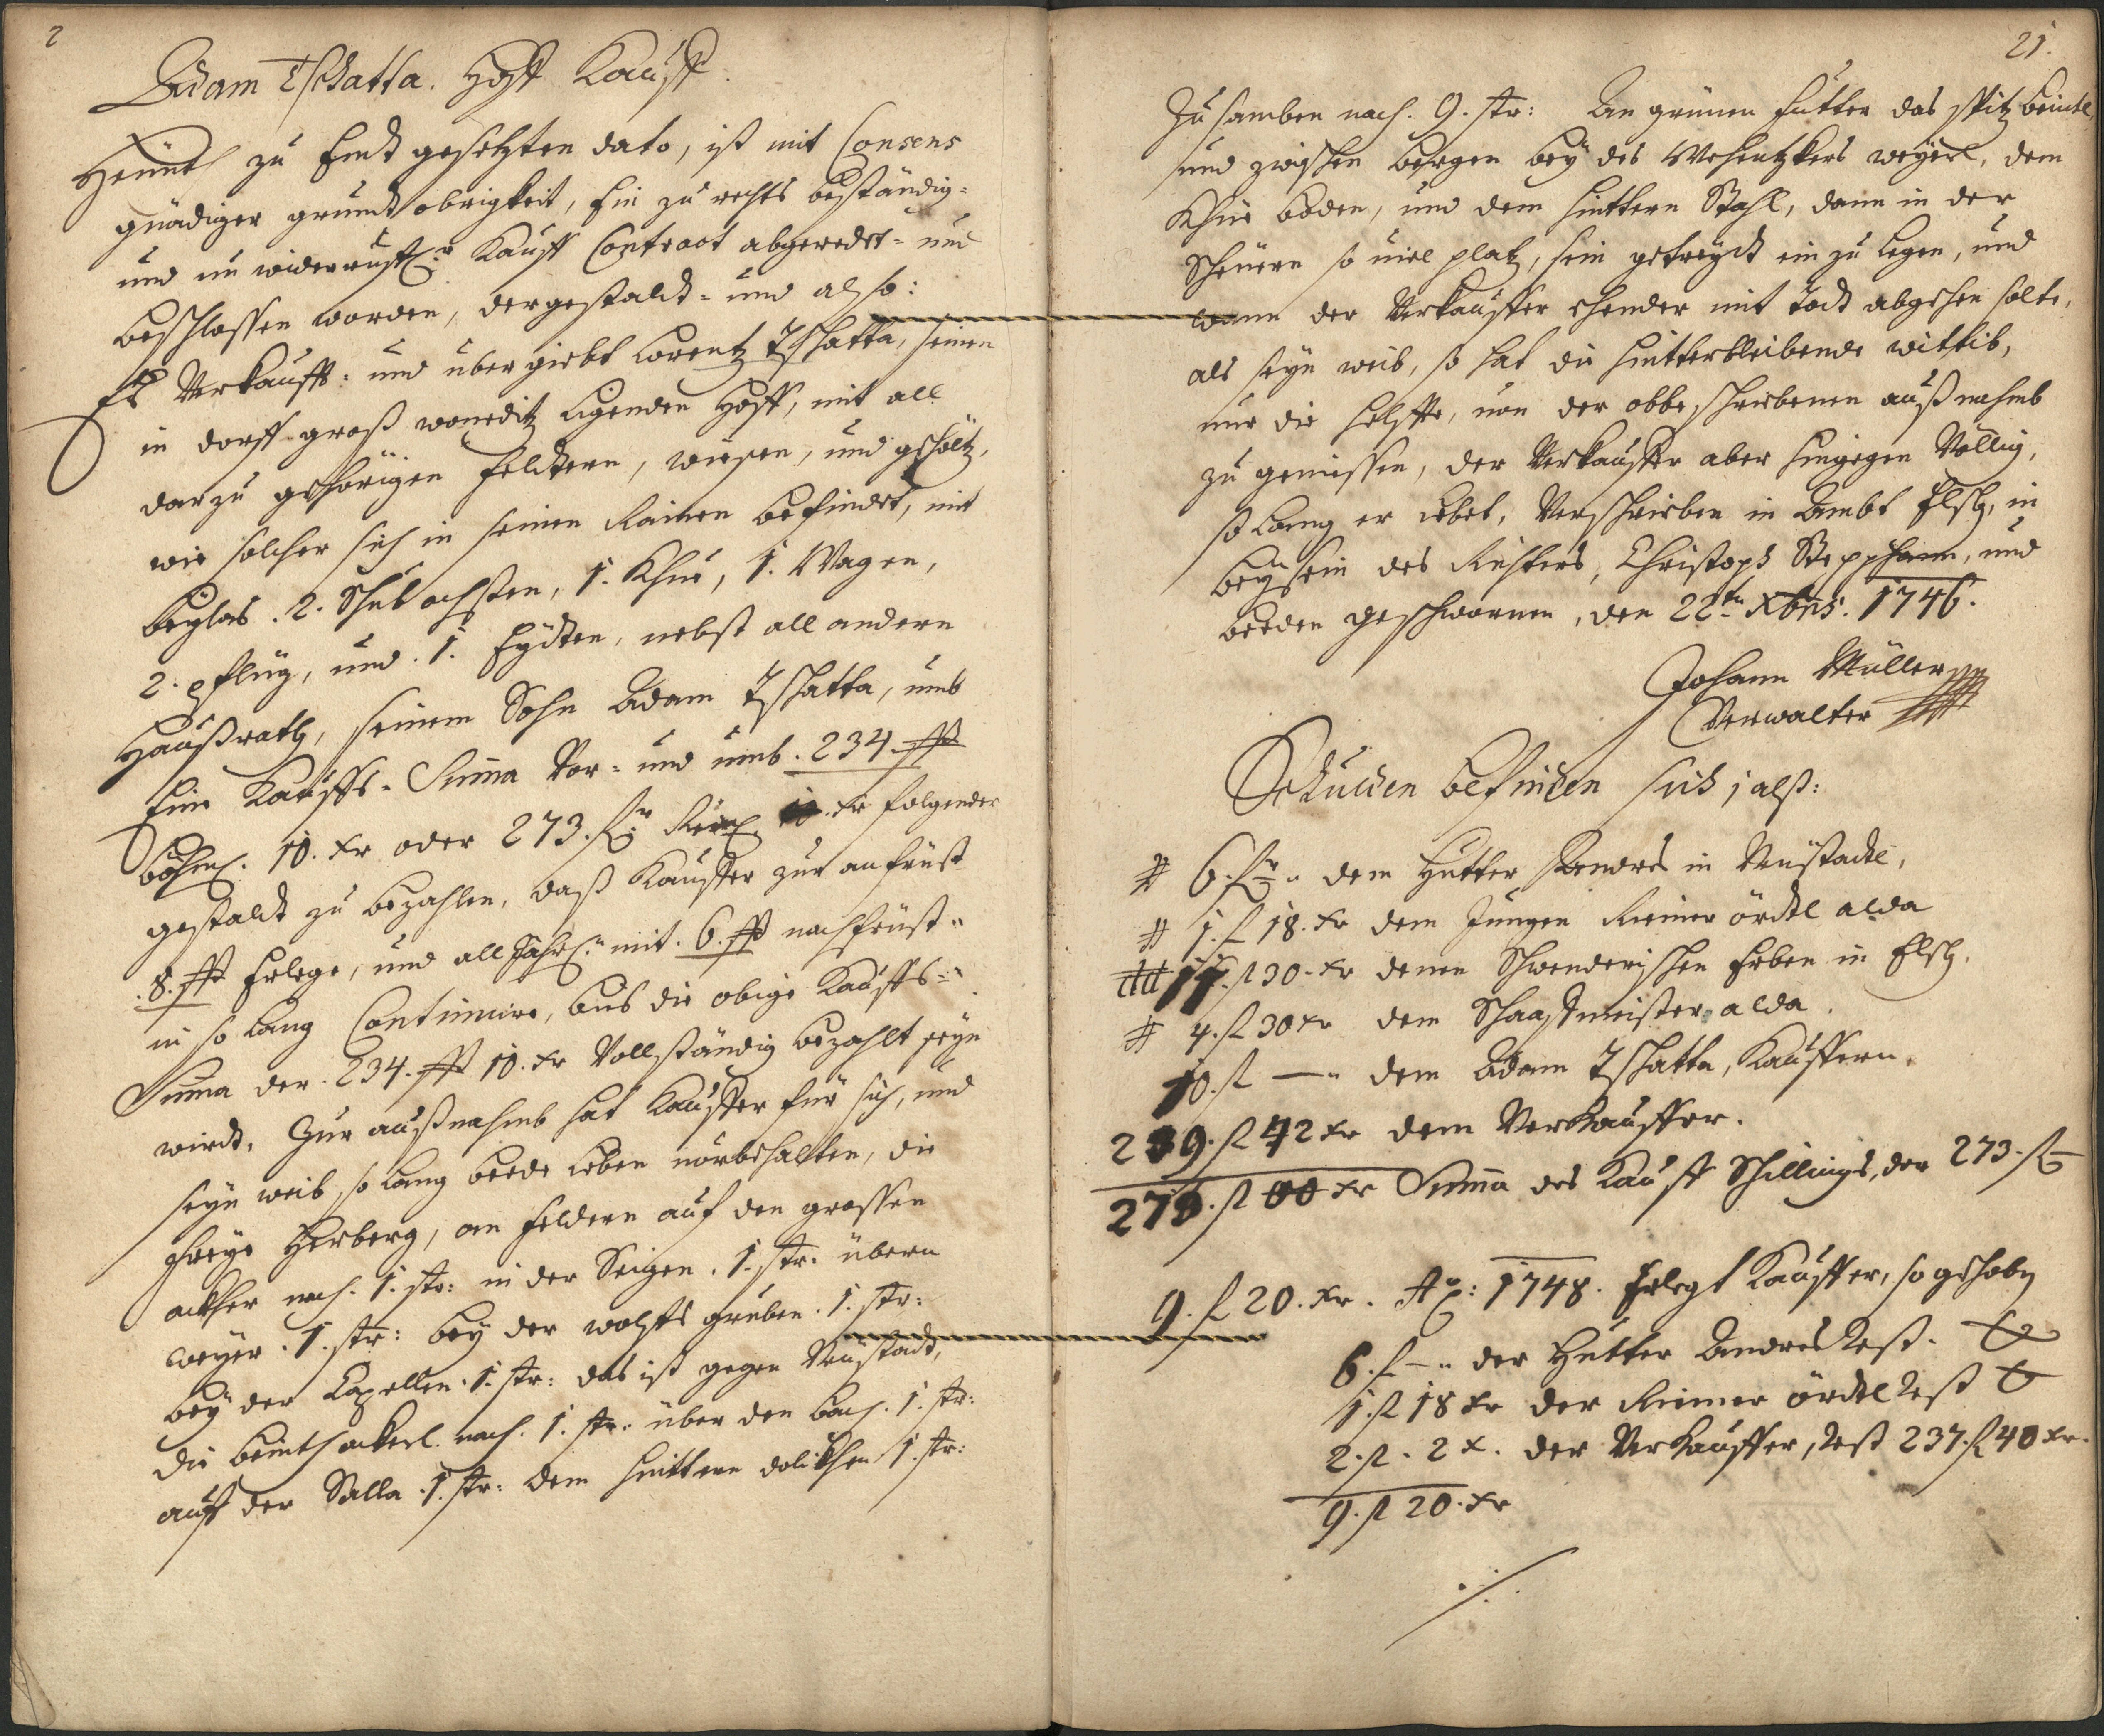 2
Adam Tschatta. Hoff Kauff.
Heünt zu Endt gesetzten dato, ist mit Consens
gnädiger grundt obrigkeit, Ein zu rechts beständig-
und un widerruffl:r Kauff Contract abgeredet- und
beschlossen worden, dergestaldt- und also:
Es Verkaufft- und übergiebt Lorentz Tschatta, seinen
in dorff groß wonetitz ligenden Hoff, mit all
darzu gehörigen Feldtern, wiesen, und gehöltz,
wie solcher sich in seinen Rainen befindet, mit
beylas. 2. Schub ochsen, 1. Khue, 1. Wagen,
2. pflüg, und. 1. Eydten, nebst all andern
Haußrath, seinem Sohn Adam Tschatta, umb
Eine Kauffs-Suma Vor- und umb. 234. ßß
böhml. 10. Kr oder 273. fl:r Reinl. Kr folgender
gestaldt zu bezahlen, daß Kauffer zur anfrüst
. 8. ßß Erlege, und all Jährl: mit. 6. ßß nachfrüst-
in so lang Continuire, bis die obige Kauffs-
Suma der. 234. ßß 10. Kr Vollständig bezahlt seyn
wirdt. Zur außnahmb hat Kauffer für sich, und
seyn weib so lang beede Leben vorbehalten, die
freye Herberg, an Feldern auf den grossen
ackher nach. 1. str: in der Seigen. 1. str: übern
weyer. 1. str: bey der wolffs gruben. 1. str:
bey der Capellen. 1. str: das ist gegen Neustadt,
die beinth ackerl nach. 1. str: über den bach. 1. str:
auff der Salla. 1. str: dem hüttern 1. str:
21.
Zusamben nach. 9. str: An grünen futter das spitz beintl,
und zwischen bergen bey des weyerl, dem
Khue boden, und dem hinttern Stahl, dann in der
Scheüern so viel platz, sein getreydt ein zu legen, und
wann der Verkauffer ehender mit Todt abgehen solte,
als seyn weib, so hat die hintterbleibende wittib,
nur die helffte, von der obbeschriebenen außnahmb
zu geniessen, der Verkauffer aber hingegen Völlig,
so lang er lebet, Verschrieben in Ambt Elsch, in
beysein des Richters, Christoph Stepphann, und
beeden geschwornen, den 22ten Xbris. 1746.
Johann Müller
Verwalter
Schulden befinden sich, alß:
# 6. fl:r " dem Hutter Andres in Neüstadtl,
# 1. fl 18. Kr dem Jungen Riemer ördtl alda
## 11. fl 30. Kr denen Schwenderischen Erben in Elsch.
# 4. fl 30 Kr dem Schaaffmeister alda.
10. fl — " dem Adam Tschatta, Kauffern.
239. fl 42 Kr dem Verkauffer.
273. fl 00 Kr Suma des Kauff Schillings, der 273. fl
9. fl 20. Kr. Aõ: 1748. Erlegt Kauffer, so gehoben
6. fl — " der Hutter Andres Rest.
1. fl 18 Kr der Riemer ördtl Rest
2. fl. 2 x. der Verkauffer, Rest 237. fl 40 Kr.
9. fl 20. Kr